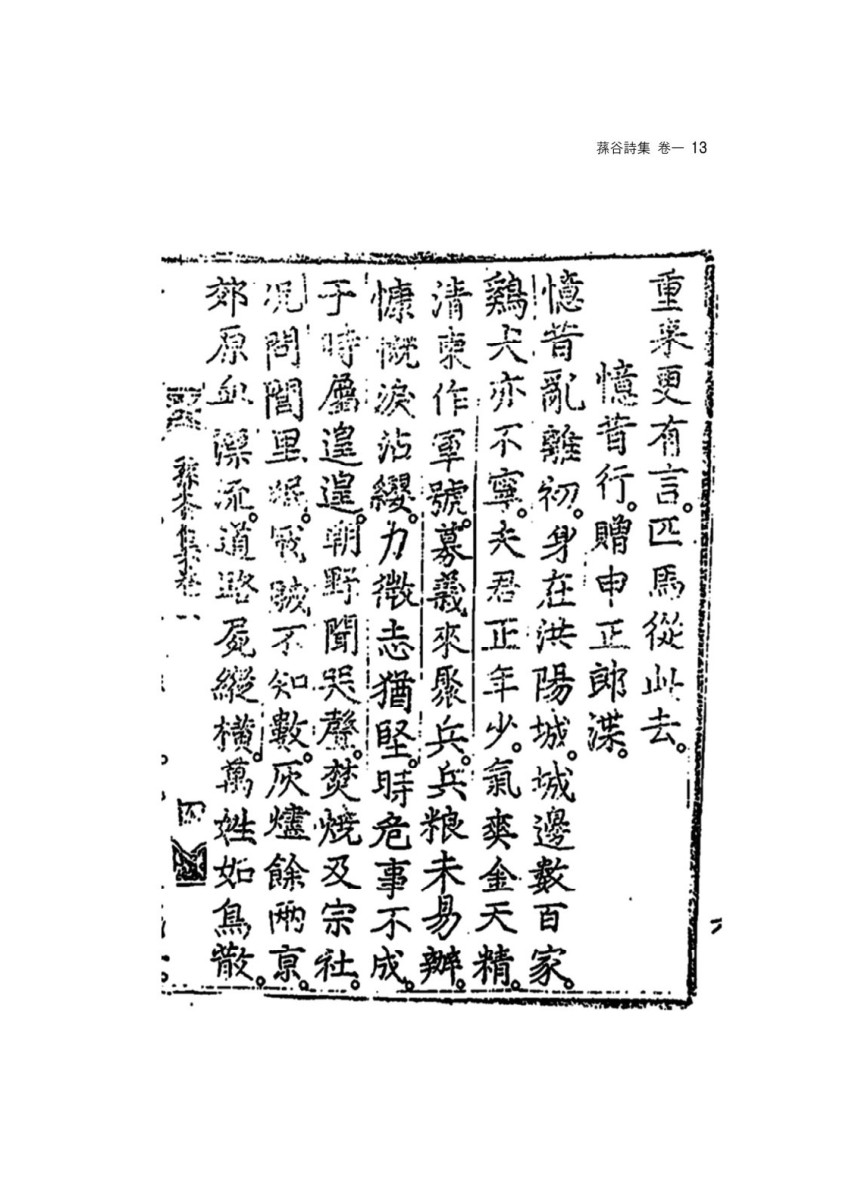 蓀谷詩集 卷一 13
重來更有言。匹馬從此去。
憶昔行。贈申正郎渫。
憶昔亂離初。身在洪陽城。城邊數百家。
鷄犬亦不寧。夫君正年少。氣爽金天精。
淸東作軍號。募義來聚兵。兵粮未易辦。
慷慨淚沾纓。力微志猶堅。時危事不成。
于時屬遑遑。朝野聞哭聲。焚燒及宗社。
況問閭里氓。戰賊不知數。灰燼餘兩京。
郊原血漂流。道路屍縱橫。萬姓如鳥散。
蓀谷集卷一
四